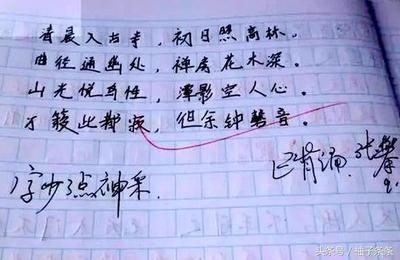 清晨入古寺，初日照高林。
曲径通幽处，禅房花木深。
山光悦鸟性，潭影空人心。
万籁此都寂，但余钟磬音。
已背诵.
字少点神采.
头条号 /